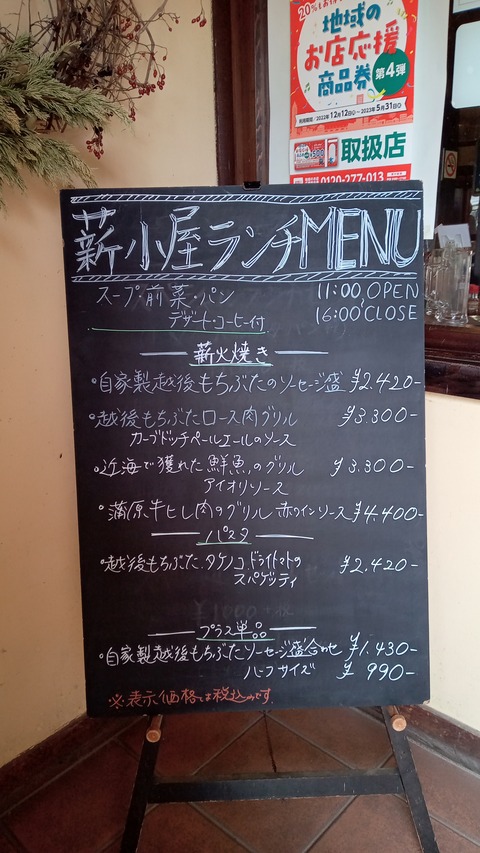 20%もお得
地域の
お店応援
商品券
第4弾
利用期間/2022年12月12日~2023年5月31日
取扱店
0120-277-013
薪小屋ランチMENU
スープ・前菜・パン 11:00 OPEN
デザート・コーヒー付 16:00 CLOSE
薪火焼き
・自家製越後もちぶたのソーセージ盛 ¥2.420-
・越後もちぶたロース肉グリル ¥3.300-
カーブドッチペールエールのソース
・近海で獲れた鮮魚のグリル ¥3.300-
アイオリソース
・蒲原牛ヒレ肉のグリル 赤ワインソース ¥4.400-
パスタ
・越後もちぶた、タケノコ、ドライトマトの ¥2.420-
スパゲッティ
プラス単品
・自家製越後もちぶたソーセージ盛合わせ ¥1.430-
ハーフサイズ ¥990-
※表示価格は税込みです